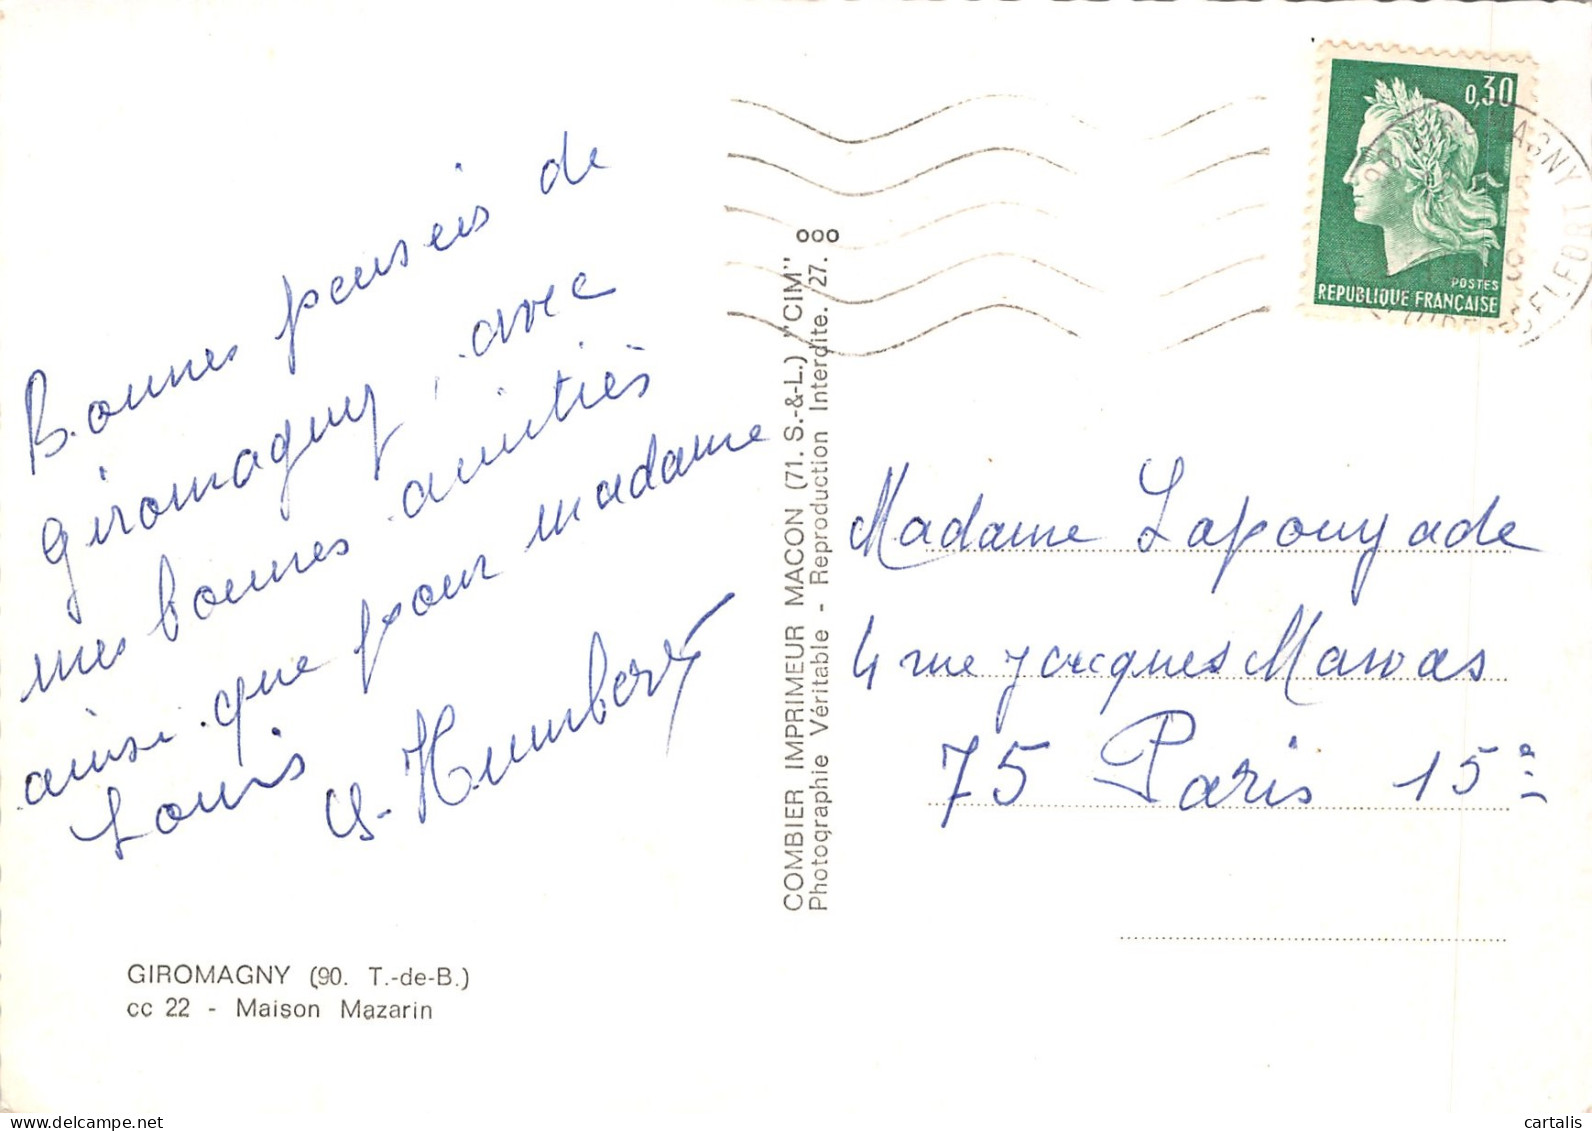 Bonnes pensées de
Giromagny, avec
mes bonnes amitiés
ainsi que pour madame
Louis
G. Humbert
GIROMAGNY (90. T.-de-B.)
cc 22 - Maison Mazarin
COMBIER IMPRIMEUR MACON (71. S.-&-L.) "CIM"
Photographie Véritable - Reproduction Interdite. 27.
ooo
0,30
POSTES
REPUBLIQUE FRANÇAISE
Madame Lapouyade
4 rue Jacques Mawas
75 Paris 15è
cartalis